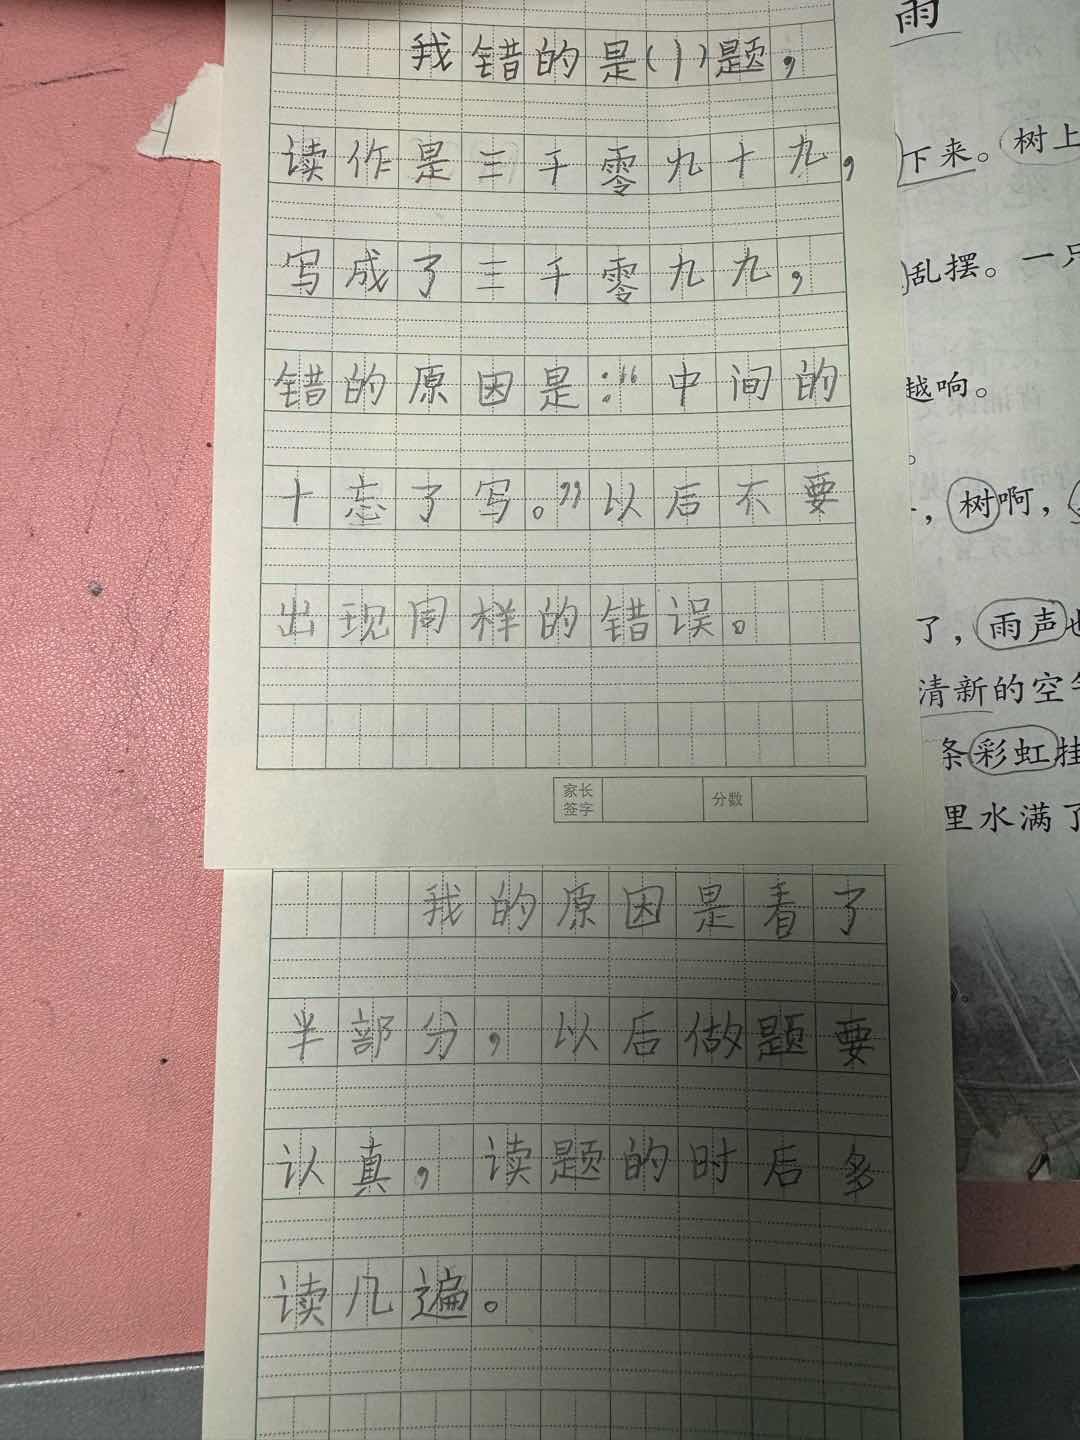 我错的是(1)题，
读作是三千零九十九，
写成了三千零九九，
错的原因是：“中间的
十忘了写。”以后不要
出现同样的错误。
家长签字
分数
我的原因是看了
半部分，以后做题要
认真，读题的时后多
读几遍。
雨
下来。树上
乱摆。一只
越响。
。
，树啊，
了，雨声也
清新的空气
条彩虹挂
里水满了